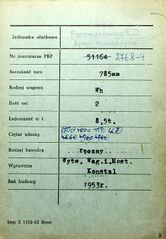 Jednostka służbowa
Parowozownia K.D.
Nr inwentarza PKP 51164 2768-4
Szerokość toru 785mm
Rodzaj wagonu Wh
Ilość osi 2
Ładowność w t. 8,5t.
Ciężar własny
Rodzaj hamulca ręczny
Wytwórnia Wytw. Wag. i Most.
Konstal
Rok budowy 1953r.